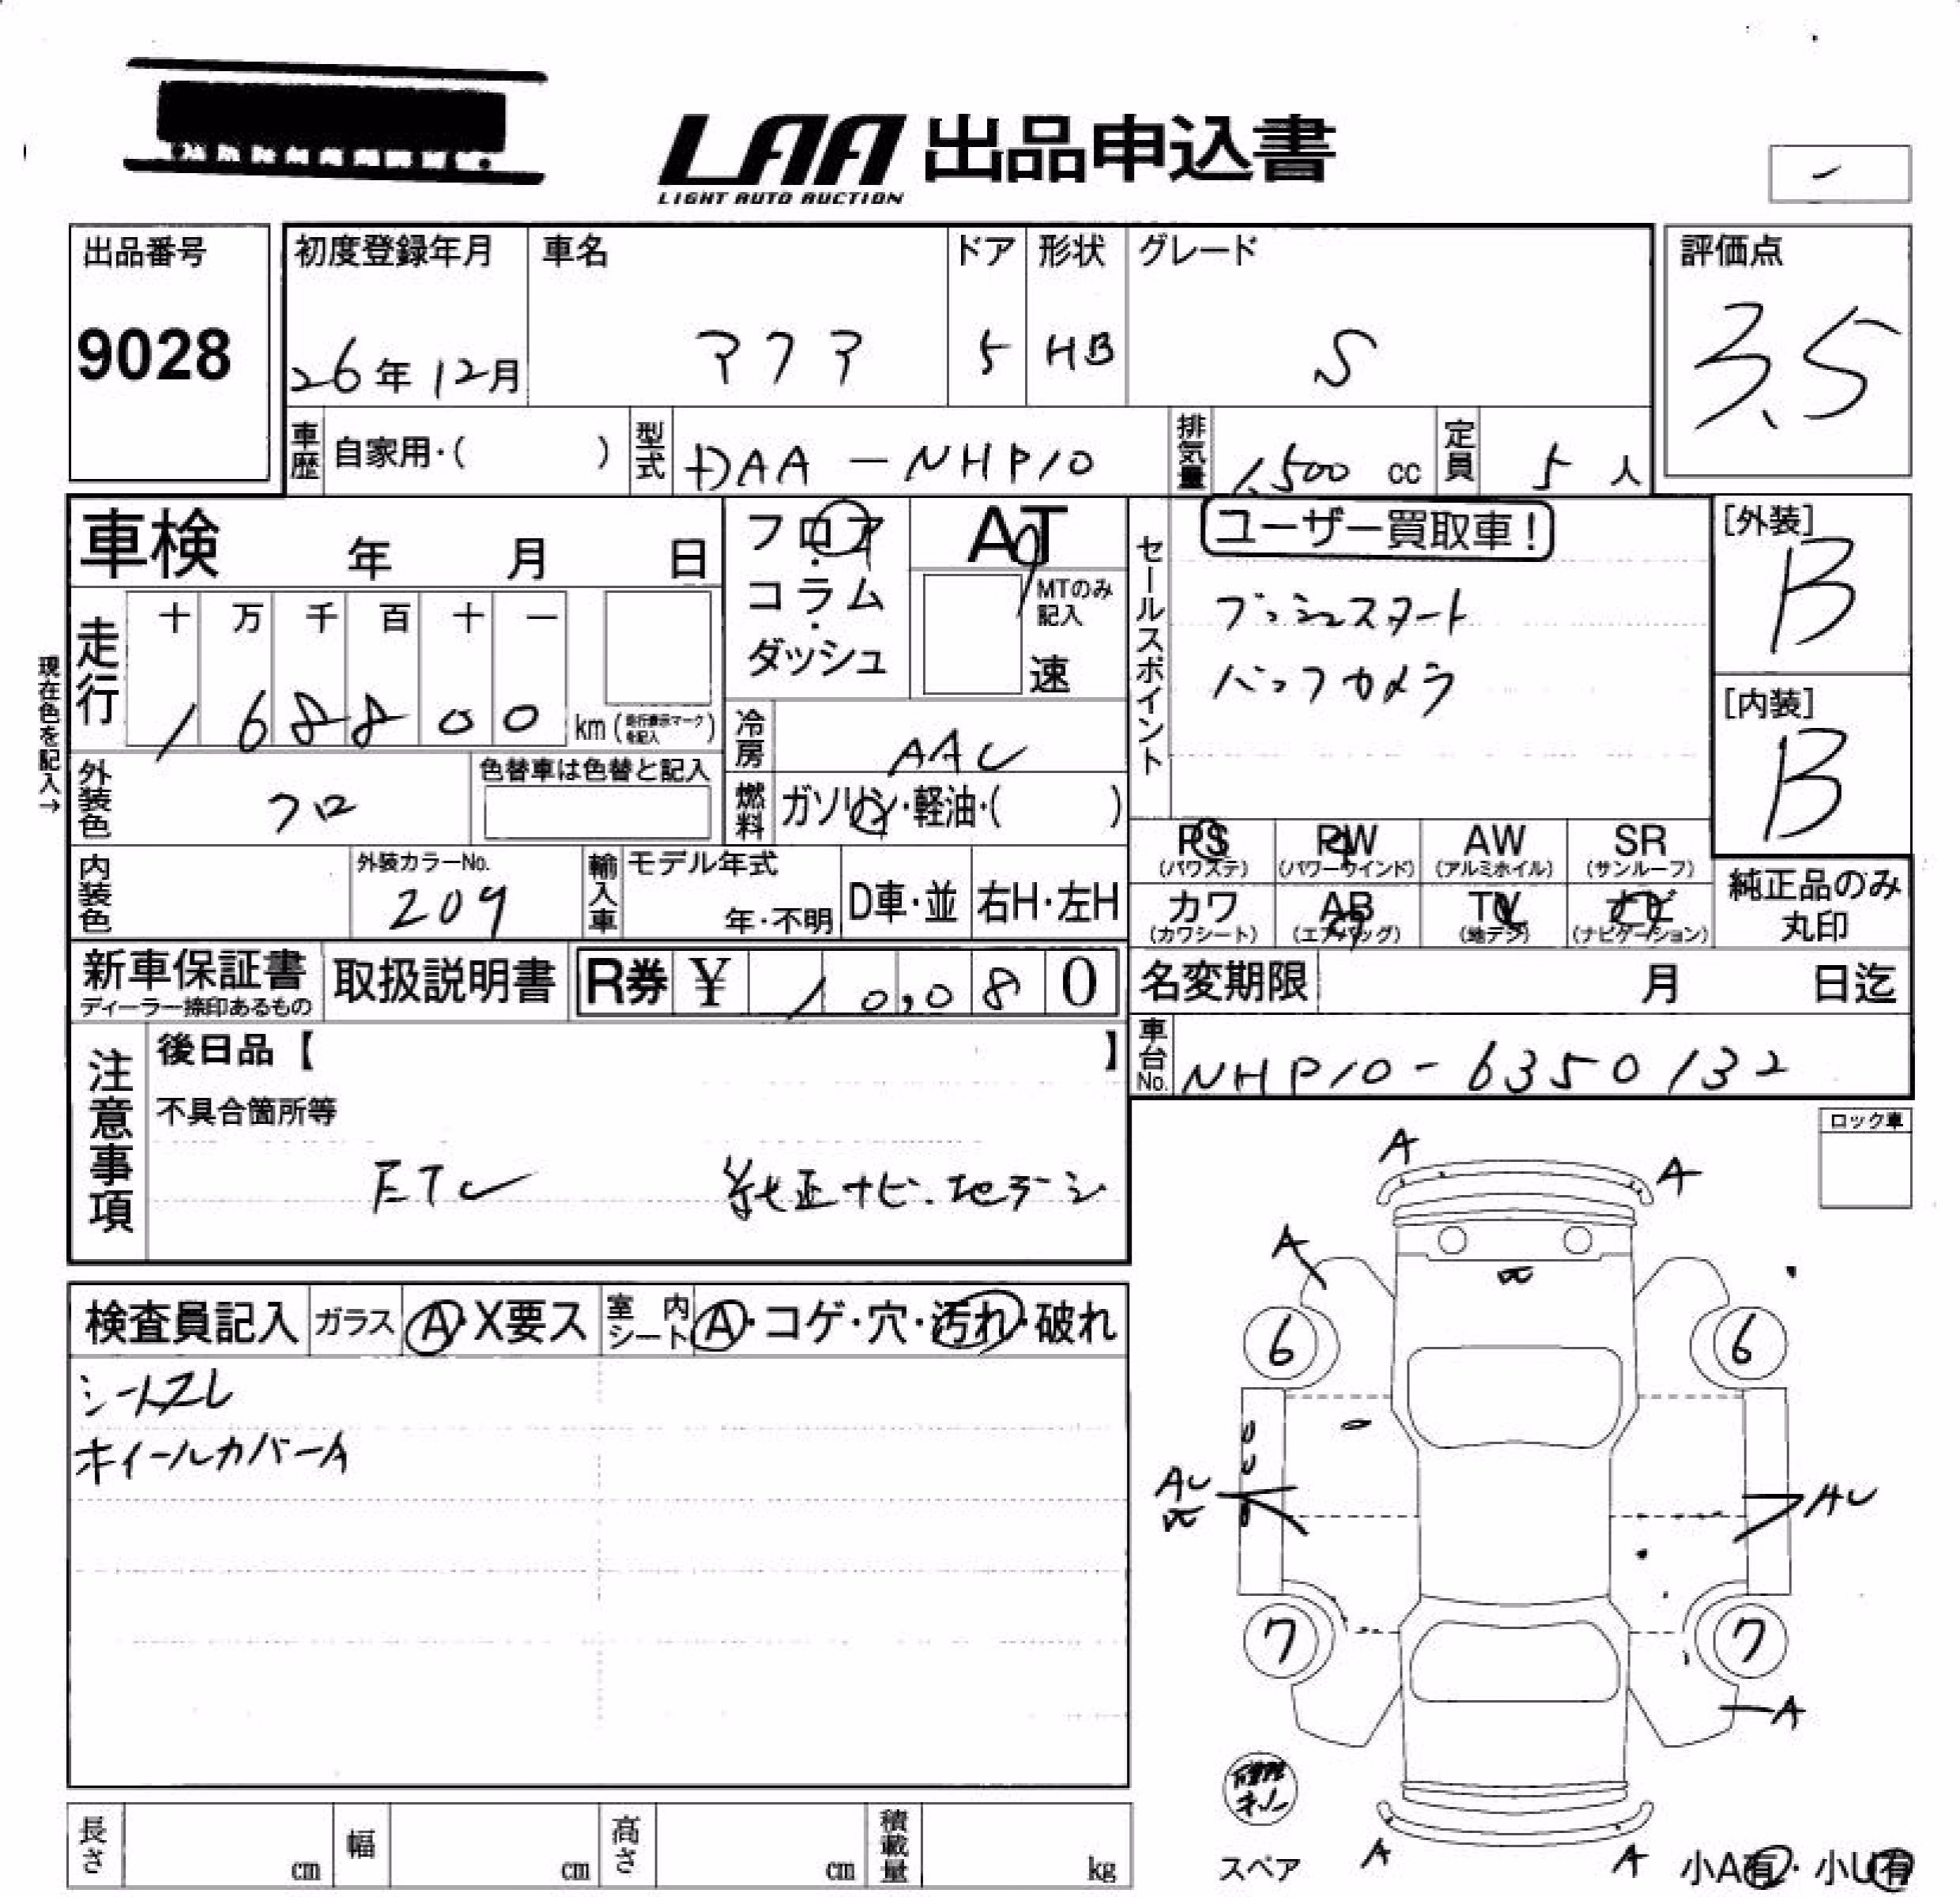 LAA 出品申込書
LIGHT AUTO AUCTION
出品番号
9028
初度登録年月 車名 ドア 形状 グレード
26年12月 アクア 5 HB S
評価点
3.5
車歴 自家用・( ) 型式 DAA-NHP10 排気量 1,500 cc 定員 5 人
車検 年 月 日
フロア・コラム・ダッシュ
AT
MTのみ記入
速
セールスポイント
ユーザー買取車!
プッシュスタート
バックカメラ
[外装]
B
[内装]
B
現在色を記入→
走行 十 万 千 百 十 一
1 6 8 8 0 0 km (走行表示マークを記入)
冷房 AAC
外装色 クロ 色替車は色替と記入
燃料 ガソリン・軽油・( )
PS (パワステ) PW (パワーウインド) AW (アルミホイル) SR (サンルーフ)
カワ (カワシート) AB (エアバッグ) TV (地デジ) ナビ (ナビゲーション)
純正品のみ丸印
内装色 外装カラーNo. 209 輸入車 モデル年式 年・不明 D車・並 右H・左H
新車保証書 ディーラー捺印あるもの 取扱説明書 R券 ¥ 10,080
名変期限 月 日迄
車台No. NHP10-6350132
注意事項
後日品【 】
不具合箇所等
ETC 純正ナビ.地デジ
ロック車
検査員記入 ガラス A・X要ス 室内シート A・コゲ・穴・汚れ・破れ
シートスレ
ホイールカバーA
A A
A
6 6
AU AU
7 7
A
スペア
A A
小A有・小U有
長さ cm 幅 cm 高さ cm 積載量 kg